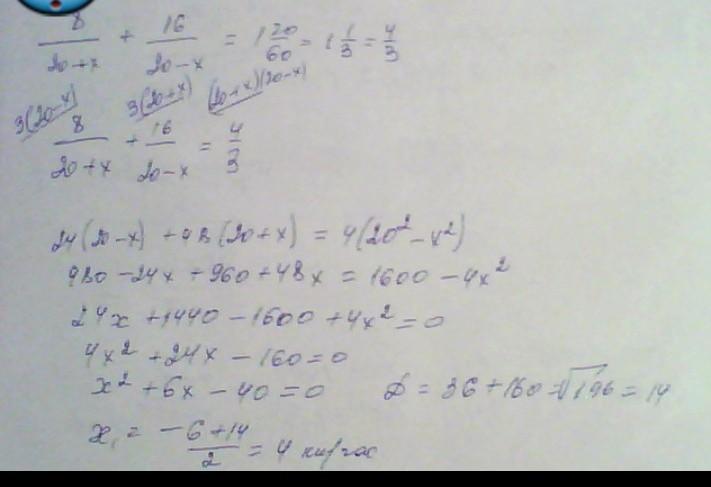 8/(20+x) + 16/(20-x) = 1 20/60 = 1 1/3 = 4/3
3(20-x) 3(20+x) (20+x)(20-x)
8/(20+x) + 16/(20-x) = 4/3
24(20-x) + 48(20+x) = 4(20²-x²)
480 - 24x + 960 + 48x = 1600 - 4x²
24x + 1440 - 1600 + 4x² = 0
4x² + 24x - 160 = 0
x² + 6x - 40 = 0 D = 36 + 160 = √196 = 14
x₁ = (-6+14)/2 = 4 км/час